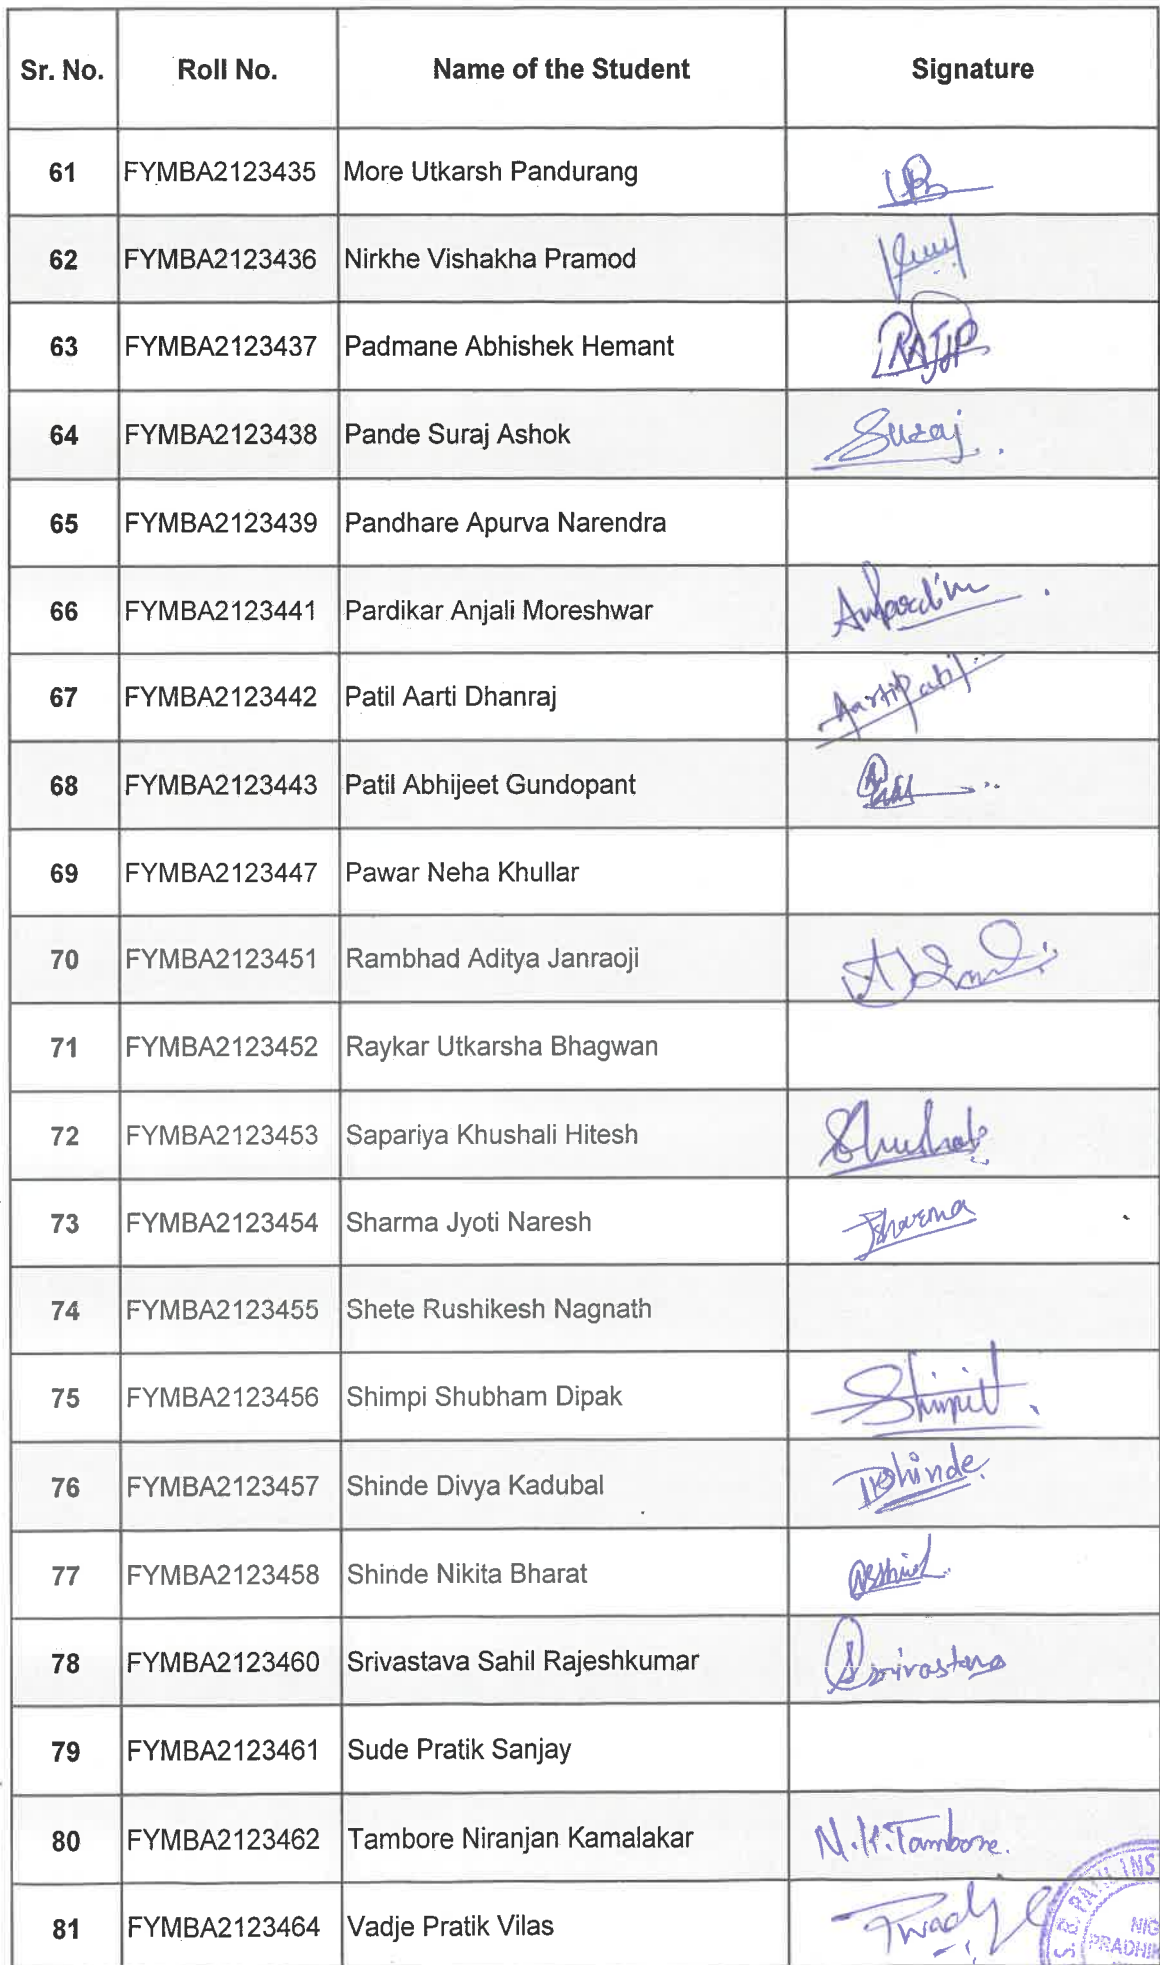 Sr. No. Roll No. Name of the Student Signature
61 FYMBA2123435 More Utkarsh Pandurang
62 FYMBA2123436 Nirkhe Vishakha Pramod
63 FYMBA2123437 Padmane Abhishek Hemant
64 FYMBA2123438 Pande Suraj Ashok Suraj
65 FYMBA2123439 Pandhare Apurva Narendra
66 FYMBA2123441 Pardikar Anjali Moreshwar
67 FYMBA2123442 Patil Aarti Dhanraj AartiPatil
68 FYMBA2123443 Patil Abhijeet Gundopant
69 FYMBA2123447 Pawar Neha Khullar
70 FYMBA2123451 Rambhad Aditya Janraoji
71 FYMBA2123452 Raykar Utkarsha Bhagwan
72 FYMBA2123453 Sapariya Khushali Hitesh
73 FYMBA2123454 Sharma Jyoti Naresh Sharma
74 FYMBA2123455 Shete Rushikesh Nagnath
75 FYMBA2123456 Shimpi Shubham Dipak
76 FYMBA2123457 Shinde Divya Kadubal DShinde
77 FYMBA2123458 Shinde Nikita Bharat
78 FYMBA2123460 Srivastava Sahil Rajeshkumar
79 FYMBA2123461 Sude Pratik Sanjay
80 FYMBA2123462 Tambore Niranjan Kamalakar N.K.Tambore.
81 FYMBA2123464 Vadje Pratik Vilas
S. B. PATIL INS
NIG
PRADHIK